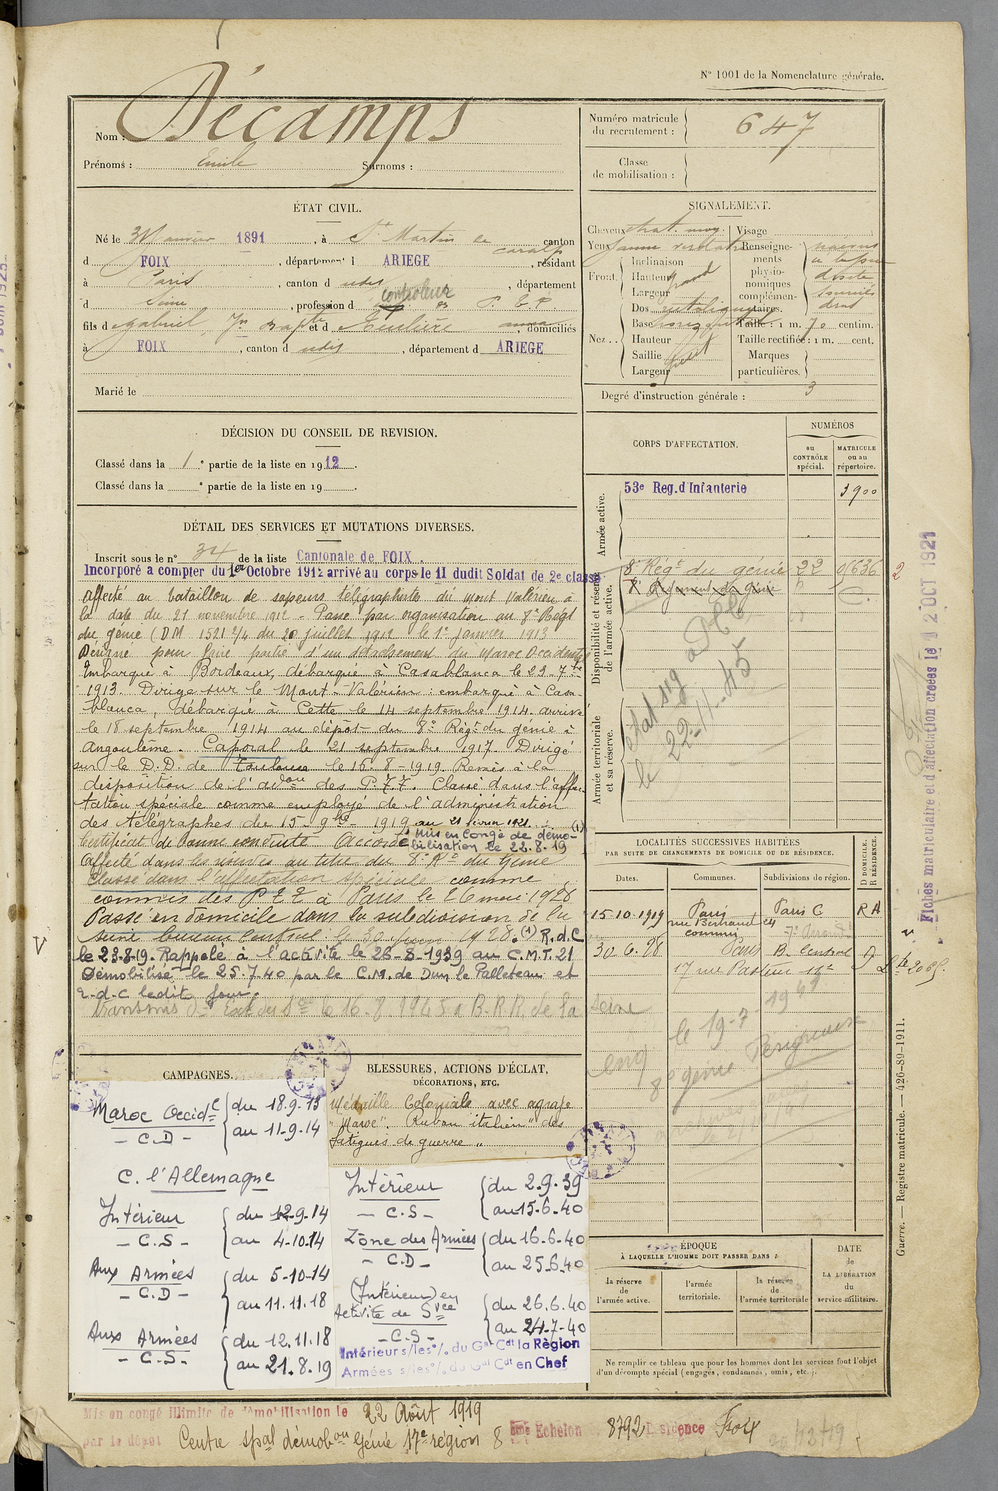 N° 1001 de la Nomenclature générale.
Nom : Décamps
Prénoms : Emile Surnoms :
Numéro matricule du recrutement : 647
Classe de mobilisation :
ÉTAT CIVIL.
Né le 3 Janvier 1891, à St Martin de Caralp canton
d FOIX, département d ARIEGE, résidant
à Paris, canton d udit, département
d Seine, profession d controleur des P. T. T.
fils d Gabriel, Jn Bapte et d domiciliés
à FOIX, canton d udit, département d ARIEGE
Marié le
SIGNALEMENT.
Cheveux chat. moy.
Yeux jaune verdatre
Front.
Inclinaison
Hauteur grand
Largeur
Nez..
Dos rectiligne
Base horizontal
Hauteur
Saillie petit
Largeur
Visage
Renseignements physionomiques complémentaires.
Taille : 1 m. 70 centim.
Taille rectifiée : 1 m. cent.
Marques particulières.
Degré d'instruction générale : 3
DÉCISION DU CONSEIL DE REVISION.
Classé dans la 1e partie de la liste en 1912.
Classé dans la e partie de la liste en 19 .
CORPS D'AFFECTATION.
NUMÉROS
au CONTRÔLE spécial.
MATRICULE ou au répertoire.
Armée active.
53e Reg. d'Infanterie 3900
Disponibilité et réserve de l'armée active.
8e Régt du génie 22 0/636 2
8e Régiment du génie
Armée territoriale et sa réserve.
état sig
le 22-11-45
DÉTAIL DES SERVICES ET MUTATIONS DIVERSES.
Inscrit sous le n° 34 de la liste Cantonale de FOIX.
Incorporé à compter du 1er Octobre 1912 arrivé au corps le 11 dudit Soldat de 2e classe
Affecté au bataillon de sapeurs télégraphistes du Mont Valérien à
la date du 21 novembre 1912 - Passé par organisation au 8e Régt
du génie (DM 1521 2/4 du 20 juillet 1912 le 1er janvier 1913
Désigné pour faire partie d'un détachement du Maroc Occidental
Embarqué à Bordeaux, débarqué à Casablanca le 23. 7bre
1913. Dirigé sur le Mont-Valérien : embarqué à Casa-
blanca, débarqué à Cette le 14 septembre 1914. arrivé
le 18 septembre 1914 au dépôt du 8e Régt du génie à
Angoulème. Caporal le 21 septembre 1917. Dirigé
sur le D.D. de Toulouse le 15-8-1919. Remis à la
disposition de l'adon des P.T.T. Classé dans l'affec-
tation spéciale comme employé de l'administration
des télégraphes du 15 9bre 1919 au 21 février 1921.
Certificat de bonne conduite Accordé (1) Mis en congé de démo-
bilisation le 22.8.19
Affecté dans les réserves au titre du 8e Rt du génie
Classé dans l'affectation spéciale comme
commis des P T T à Paris le 26 mai 1928
Passé en domicile dans la subdivision de la
Seine bureau Central le 30 juin 1928. (1) R.d.C
le 23-8-19. Rappelé à l'activité le 26-8-1939 au C.M.T. 21
Démobilisé le 25.7.40 par le C.M. de Dun le Palleteau et
r-d-c ledit jour.
le 16.8.1945 a B.R.R. de la Seine
LOCALITÉS SUCCESSIVES HABITÉES
PAR SUITE DE CHANGEMENTS DE DOMICILE OU DE RÉSIDENCE.
Dates. Communes. Subdivisions de région. D DOMICILE. R RÉSIDENCE.
15-10-1919 Paris Paris C R A
30-6-28 Paris B. Central D
17 rue Pasteur
le 19-7-1941
8e génie Périgueux
Fiches matriculaire et d'affectation créées le 12 OCT 1921
Guerre. — Registre matricule. — 426-89-1911.
CAMPAGNES.
Maroc Occidal du 18.9.13
- C.D - au 11-9-14
C. l'Allemagne
Intérieur du 12.9.14
- C.S - au 4-10-14
Aux Armées du 5-10-14
- C.D - au 11.11.18
Aux Armées du 12.11.18
- C.S. - au 21.8.19
BLESSURES, ACTIONS D'ÉCLAT,
DÉCORATIONS, ETC.
Médaille Coloniale avec agrafe
"Maroc". Ruban italien "des
fatigues de guerre"
Intérieur du 2.9.39
- C.S - au 15.6.40
Zône des Armées du 16-6-40
- C.D - au 25.6.40
(Intérieur) en
Activité de Svce du 26.6.40
- C.S - au 24-7-40
Intérieur s/les o/. du Gal Cdt la Région
Armées s/les o/. du Gal Cdt en Chef
ÉPOQUE
À LAQUELLE L'HOMME DOIT PASSER DANS :
la réserve de l'armée active.
l'armée territoriale.
la réserve de l'armée territoriale
DATE de LA LIBÉRATION du service militaire.
Ne remplir ce tableau que pour les hommes dont les services font l'objet
d'un décompte spécial (engagés, condamnés, omis, etc.).
Mis en congé illimité de démobilisation le 22 Août 1919
par le dépôt Centre spal démobon Génie 17e région 8 ème Echelon 8792 Résidence Foix